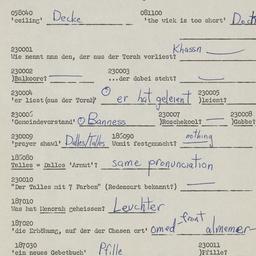 058040 081100
'ceiling' Decke 'the wick is too short' D
230001 Khassn
Wie nennt man den, der aus der Torah vorliest?
230002 230003
)Balkoore? ...der dabei steht?
230004 230005
'er liest (aus der Torah)' er hat geleient )leient?
230006 230007 230008
'Gemeindevorstand' Banness )Roschekool? )Gabbe?
230009 185090 nothing
'prayer shawl' Dalles/Talles Womit festgemacht?
185080
Talles = Dalles 'Armut'? same pronunciation
230010
"Der Talles mit 7 Farben" (Redensart bekannt?)
187010
Was hat Menorah geheissen? Leuchter
187020 front
'die Erhöhung, auf der der Chasen ort' omed almemer
187030 230011
'ein neues Gebetbuch' Pfille )Pfille?